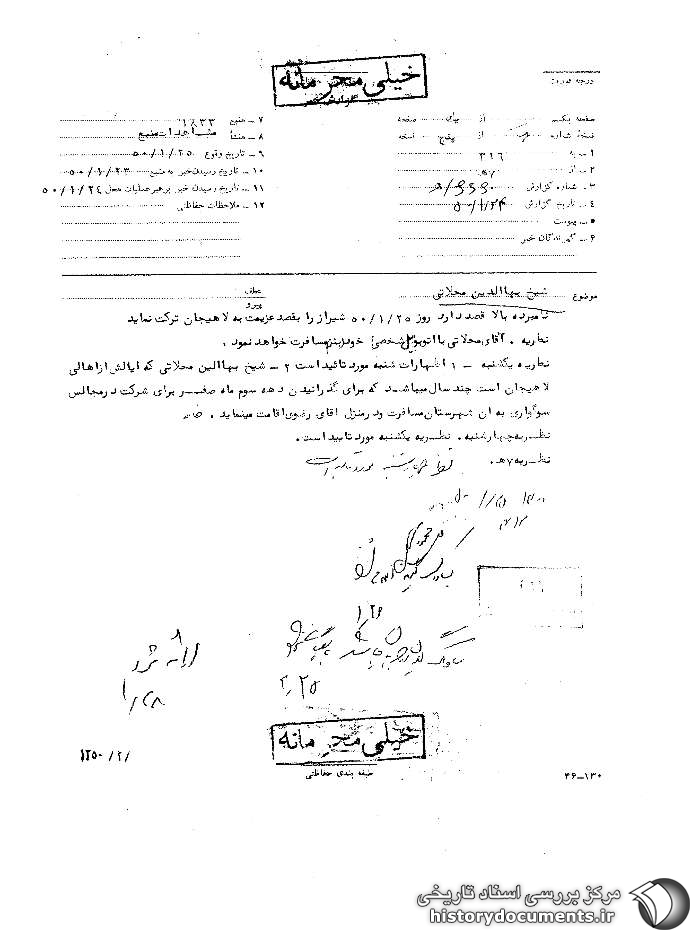 خیلی محرمانه
گزارش
درجه فوریت
صفحه یک از یک صفحه
نسخه شماره از پنج نسخه
۱ – به ۳۱۶
۲ – از ۷ﻫ
۳ – شماره گزارش
۴ – تاریخ گزارش ۵۰/۱/۲۴
۵ – پیوست
۶ – گیرندگان خبر
۷ – منبع ۱۸۳۳
۸ – منشأ مشاهدات منبع
۹ – تاریخ وقوع ۵۰/۱/۲۵
۱۰ – تاریخ رسیدن خبر به منبع ۵۰/۱/۲۳
۱۱ – تاریخ رسیدن خبر برهبر عملیات محل ۵۰/۱/۲۴
۱۲ – ملاحظات حفاظتی
موضوع شیخ بهاالدین محلاتی
عطف
پیرو
نامبرده بالا قصد دارد روز ۵۰/۱/۲۵ شیراز را بقصد عزیمت به لاهیجان ترکت نماید
نظریه . آقای محلاتی با اتومبیل شخصی خود بنز مسافرت خواهد نمود .
نظریه یکشنبه – ۱ اظهارات شنبه مورد تائید است ۲ – شیخ بهاالین محلاتی که ایالش از اهالی
لاهیجان است چند سال میباشد که برای گذرانیدن دهه سوم ماه صفر برای شرکت در مجالس
سوگواری به ان شهرستان مسافرت و در منزل اقای رضوی اقامت مینماید .
نظریه چهارشنبه . نظریه یکشنبه مورد تایید است .
نظریه ۷ﻫ . نظریه چهارشنبه مورد تایید است
۵۰/۱/۲۵
۳۱۲
۱/۲۶
۲/۲۵
ارائه شد
۱/۲۸
خیلی محرمانه
طبقه بندی حفاظتی
۱۲۵۰/۲/
۳۶–۱۳۰
مرکز بررسی اسناد تاریخی
historydocuments.ir